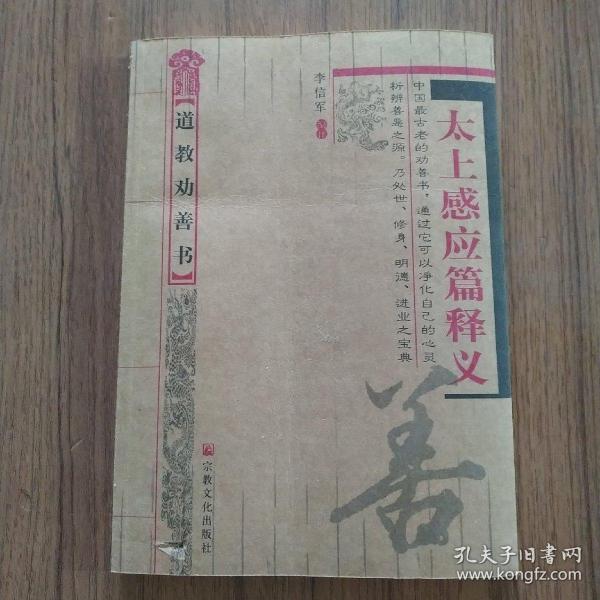 太上感应篇释义
中国最古老的劝善书，通过它可以净化自己的心灵
析辨善恶之源。乃处世、修身、明德、进业之宝典
李信军
【道教劝善书】
善
宗教文化出版社
孔夫子旧书网
www.kongfz.com